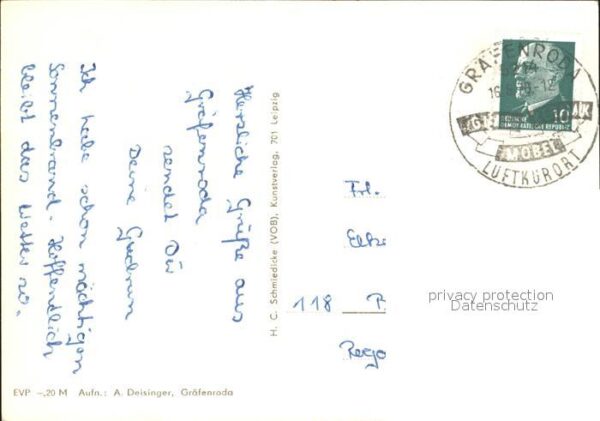 Herzliche Grüße aus
Gräfenroda
sendet Dir
Deine Gudrun
Ich habe schon mächtigen
Sonnenbrand. Hoffentlich
bleibt das Wetter so.
H. C. Schmiedicke (VOB), Kunstverlag, 701 Leipzig
GRÄFENRODA
LUFTKURORT
MÖBEL
10
DEUTSCHE
DEMOKRATISCHE REPUBLIK
Frl.
Elke
118 P
privacy protection
Datenschutz
EVP –,20 M Aufn.: A. Deisinger, Gräfenroda